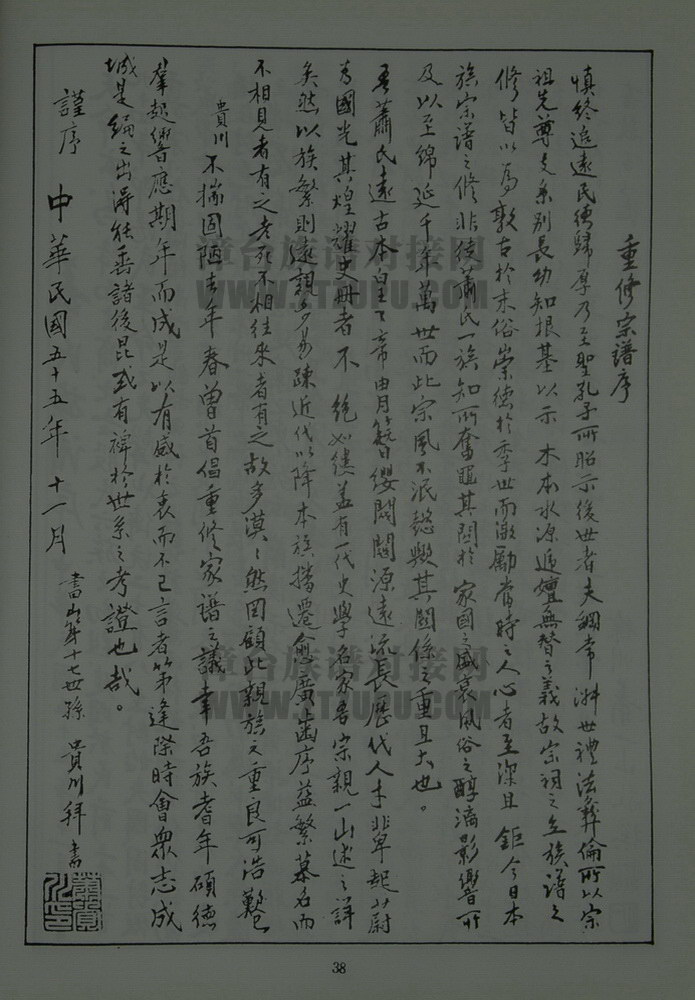 重修宗譜序
慎終追遠民德歸厚乃至聖孔子所昭示後世者夫綱常淑世禮法彝倫所以宗
祖先尊支系別長幼知根基以示木本水源遞嬗無替之義故宗祠之立族譜之
修皆以為敦古於末俗崇德於季世而激勵當時之人心者至深且鉅今日本
族宗譜之修非徒蕭氏一族知所奮電其關於家國之盛衰風俗之醇漓影響所
及以至綿延千年萬世而此宗風不泯懿歟其關係之重且大也。
吾蕭氏遠古本皇帝由月簪纓閥閱源遠流長歷代人才輩起蔚
為國光其煌耀史冊者不絕如縷蓋有一代史學名家吾宗親一山述之詳
矣然以族繁則遠親多易疎近代以降本族播遷愈廣齒序益繁慕名而
不相見者有之老死不相往來者有之故多漠漠然罔顧此親族之重良可浩歎
貴川不揣固陋去年春曾首倡重修家譜之議幸吾族耆年碩德
羣起響應期年而成是以有感於衷而不已言者第逢際時會衆志成
城是編之出得能垂諸後昆或有裨於世系之考證也哉。
謹序 中華民國五十五年 十一月 書山第十七世孫 貴川拜書
章台族谱对接网
WWW.ZTZUPU.COM
章台族谱对接网
WWW.ZTZUPU.COM
38